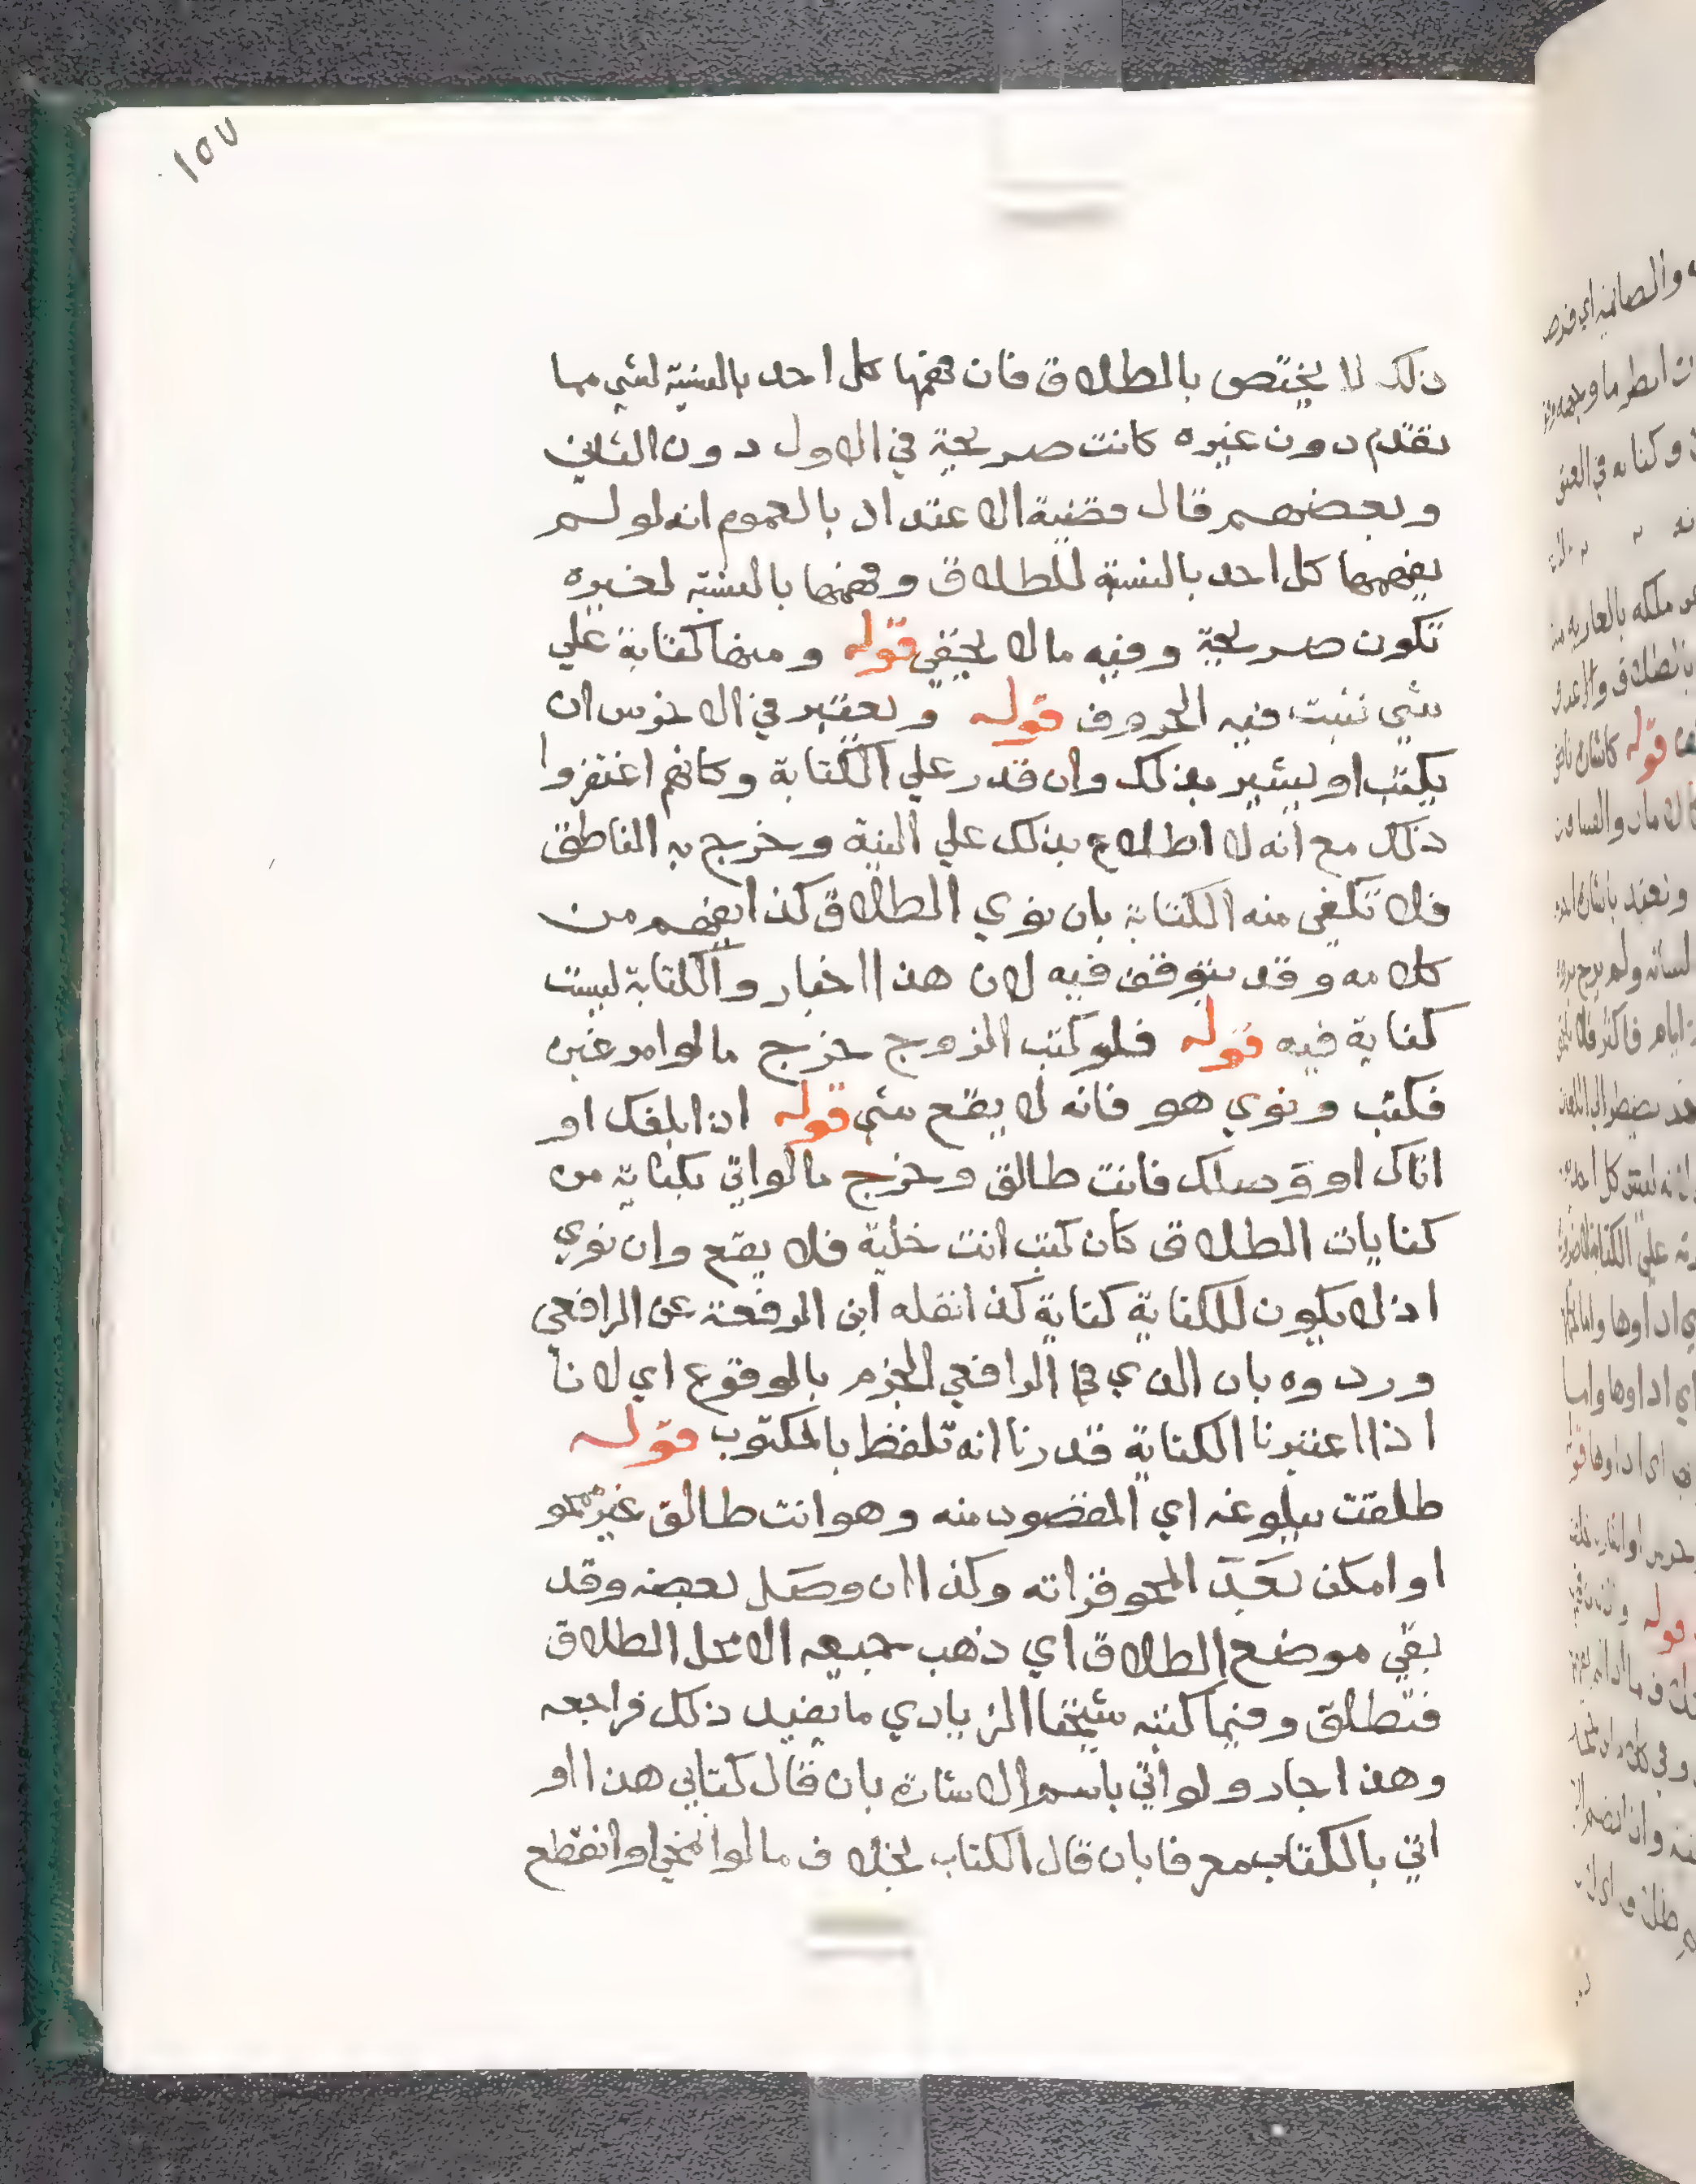 ١٥٧
ذلك لا يختص بالطلاق فان فهمها كل احد بالنسبة لشي مما
تقدم دون غيره كانت صريحة في الاول دون الثاني
وبعضهم قال قضية الاعتداد بالعموم انه لو لم
يفهمها كل احد بالنسبة للطلاق وفهمها بالنسبة لغيره
تكون صريحة وفيه ما لا يخفي قوله ومنها كتابة علي
شي تثبت فيه الحروف قوله ويعتبر في الاخرس ان
يكتب او يشير بذلك وان قدر علي الكتابة وكانهم اغتفروا
ذلك مع انه لا اطلاع بذلك علي النية وخرج به الناطق
فلا تكفي منه الكتابة بان نوي الطلاق كذا يفهم من
كلامه وقد يتوقف فيه لان هذا اخبار والكتابة ليست
كناية فيه قوله فلو كتب الزوج خرج ما لو امر غيره
فكتب ونوي هو فانه لا يقع شي قوله اذا بلغك او
اتاك او وصلك فانت طالق وخرج ما لو اتي بكناية من
كنايات الطلاق كان كتب انت خلية فلا يقع وان نوي
اذ لا يكون للكناية كناية كذا نقله ابن الرفعة عن الرافعي
وردوه بان الذي في الرافعي الجزم بالوقوع اي لانا
اذا اعتبرنا الكتابة قدرنا انه تلفظ بالمكتوب قوله
طلقت ببلوغه اي المقصود منه وهو انت طالق غير ممحو
او امكن بعد المحو قراته وكذا ان وصل بعضه وقد
بقي موضع الطلاق اي ذهب جميعه الا محل الطلاق
فتطلق وفيما كتبه شيخنا الزيادي ما يفيد ذلك فراجعه
وهذا جار ولو اتي باسم الاشارة بان قال كتابي هذا او
اتي بالكتاب معرفا بان قال الكتاب بخلاف ما لو انمحي او انقطع